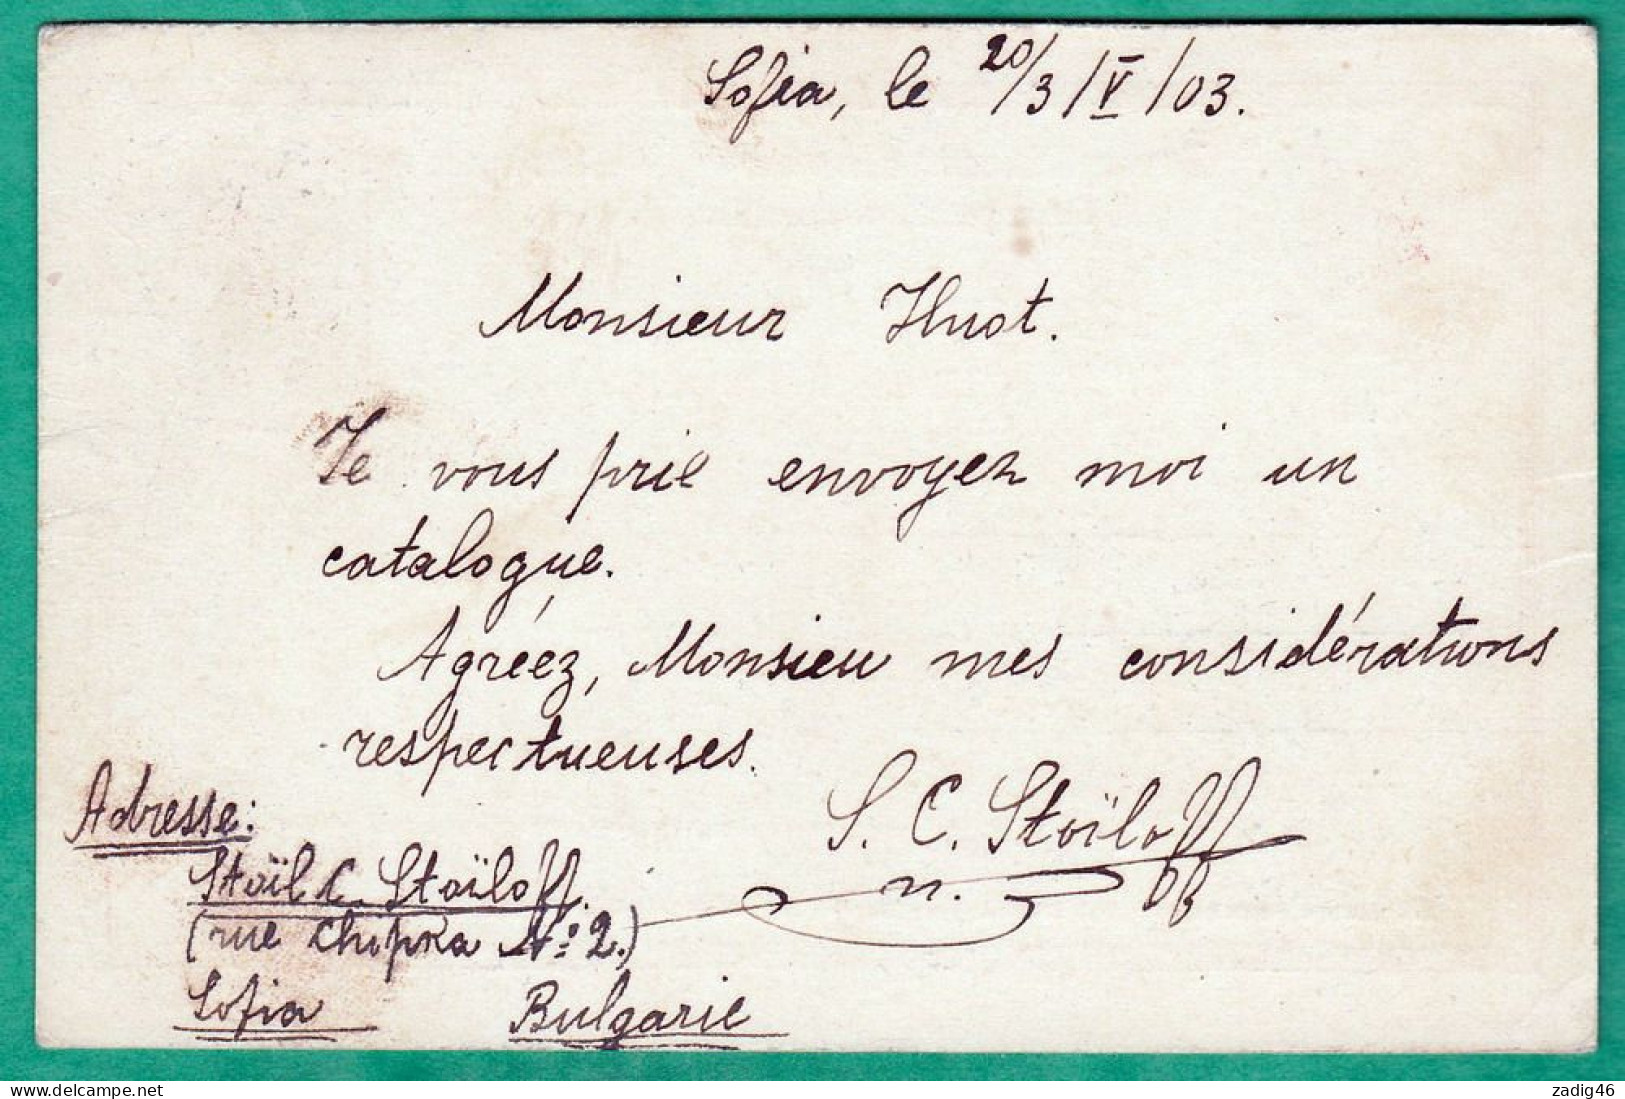 Sofia, le 20/3/V/03.
Monsieur Huot.
Je vous prie envoyez moi un
catalogue.
Agréez, Monsieu mes considérations
respectueuses.
S. C. Stoïloff
Adresse:
Stoïl C. Stoïloff.
(rue Chipka No: 2.)
Sofia Bulgarie
zadig46